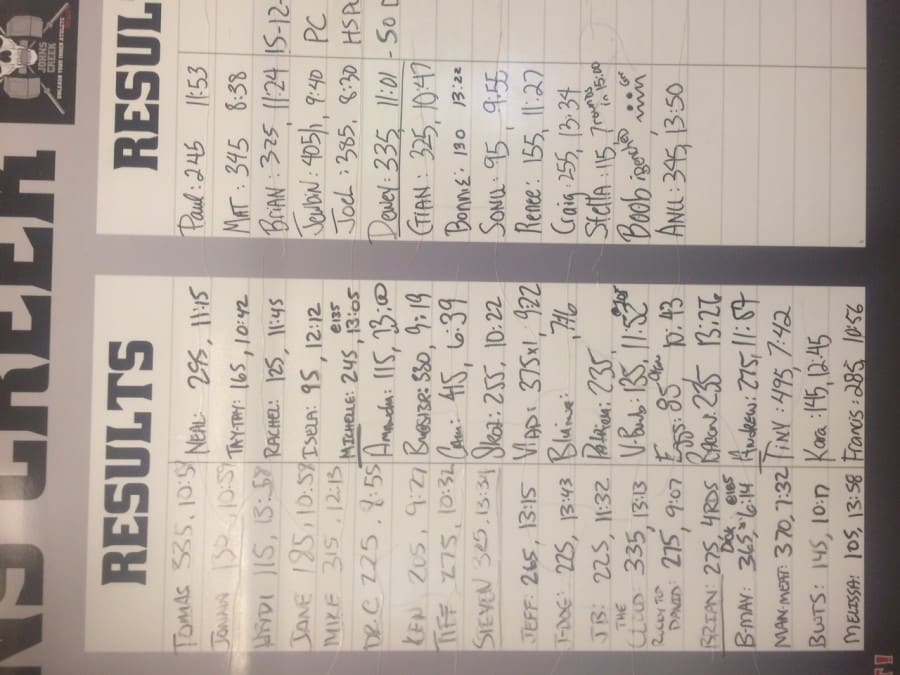 JOHNS CREEK
RESULTS
TOMAS 335, 10:58
HEIDI 115, 13:58
JANE 185, 10:58
MIKE 315, 12:13
DR.C 225, 8:55
KEN 205, 9:27
TIFF 275, 10:32
STEVEN 325, 13:34
JEFF: 265, 13:15
J-DOG: 225, 13:43
JB: 225, 11:32
THE CLOUD: 335, 13:13
DAVID: 275, 9:07
BRIAN: 275, 4RDS
B-MAY: 365, 6:14 @185
MAN MEAT: 370, 7:32
BUTS: 145, 10:17
MELISSA: 105, 13:58
NEAL: 295, 11:15
TAY-TAY: 165, 10:42
RACHEL: 125, 11:45
ISELA: 95, 12:12
MICHELLE: 245, 13:05 @135
Amanda: 115, 13:00
330, 9:19
Cam: 415, 6:39
255, 10:22
VLAD: 375x1, 9:22
Blaine: , 7:46
235
V Bomb: 135, 11:52
85, 10:43
235, 13:26
Andrew: 275, 11:57
TINY: 495, 7:42
Kara: 145, 12:45
Francis: 285, 10:56
RESUL
Paul: 245 11:53
MAT: 345 8:38
BRIAN: 325, 11:24
405, 9:40
JOEL: 385, 8:30
Dewey: 335, 11:01
GIAN: 325, 10:47
Bonnie: 130 13:22
95, 9:55
Renee: 155, 11:27
Craig: 255, 13:34
Stella: 115, 7 rounds in 15:00
Boob
345, 13:50
15-12-
PC
HSPU
- 50 D